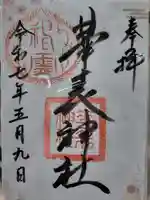 奉拝
華表神社
令和七年五月九日